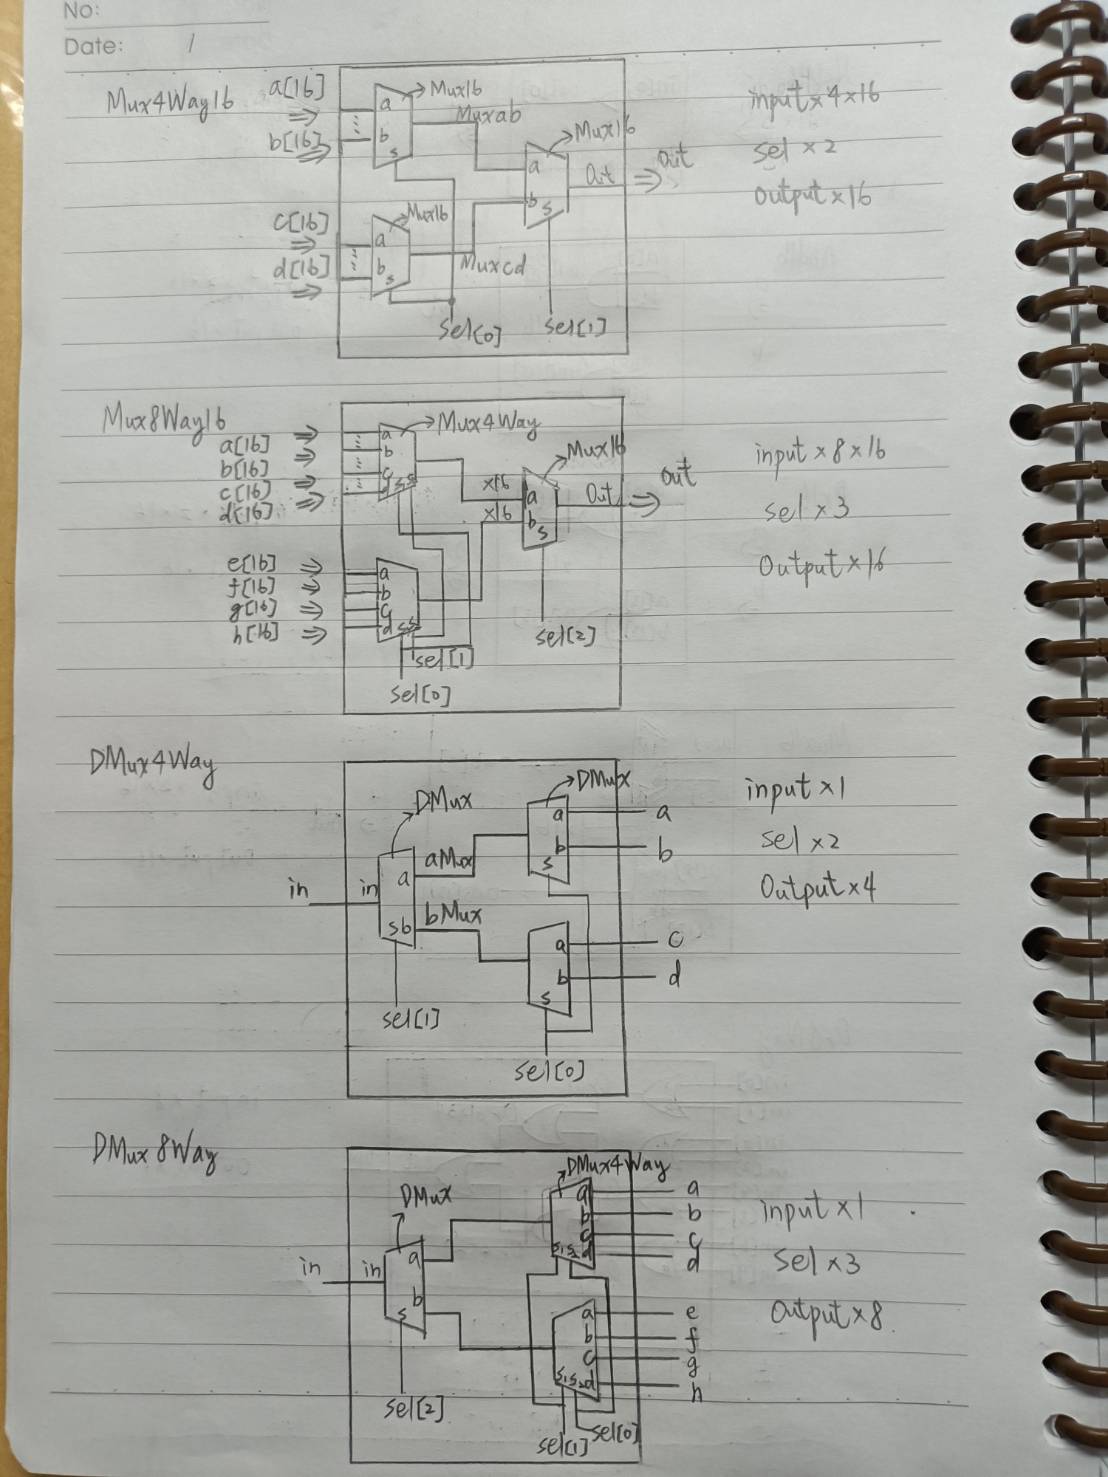 No:
Date: /
Mux4Way16
a[16]
b[16]
c[16]
d[16]
a
b
s
Mux16
Muxab
a
b
s
Mux16
Muxcd
a
b
s
Mux16
Out
out
sel[0]
sel[1]
input×4×16
sel×2
Output×16
Mux8Way16
a[16]
b[16]
c[16]
d[16]
e[16]
f[16]
g[16]
h[16]
a
b
c
d
s s
Mux4Way
a
b
c
d
s s
×16
×16
a
b
s
Mux16
Out
out
sel[1]
sel[0]
sel[2]
input×8×16
sel×3
Output×16
DMux4Way
in
in
a
sb
DMux
aMux
bMux
DMux
a
b
s
a
b
c
d
a
b
s
sel[1]
sel[0]
input×1
sel×2
Output×4
DMux8Way
in
in
a
b
s
DMux
DMux4Way
a
b
c
d
s₁s₂
a
b
c
d
a
b
c
d
s₁s₂
e
f
g
h
sel[2]
sel[1]
sel[0]
input×1
sel×3
Output×8